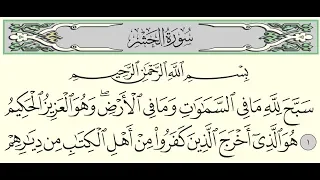 سُورَةُ الحَشْرِ
بِسْمِ اللَّهِ الرَّحْمَٰنِ الرَّحِيمِ
سَبَّحَ لِلَّهِ مَا فِي السَّمَٰوَٰتِ وَمَا فِي الْأَرْضِ ۖ وَهُوَ الْعَزِيزُ الْحَكِيمُ
١ هُوَ الَّذِي أَخْرَجَ الَّذِينَ كَفَرُوا مِنْ أَهْلِ الْكِتَٰبِ مِن دِيَٰرِهِمْ